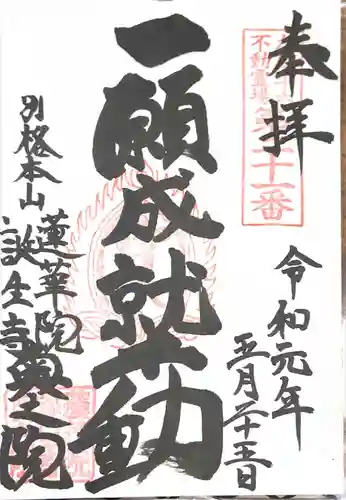 奉拝
不動霊場
二十一番
令和元年
五月二十五日
一願成就
不動
別格本山
蓮華院
誕生寺
奥之院